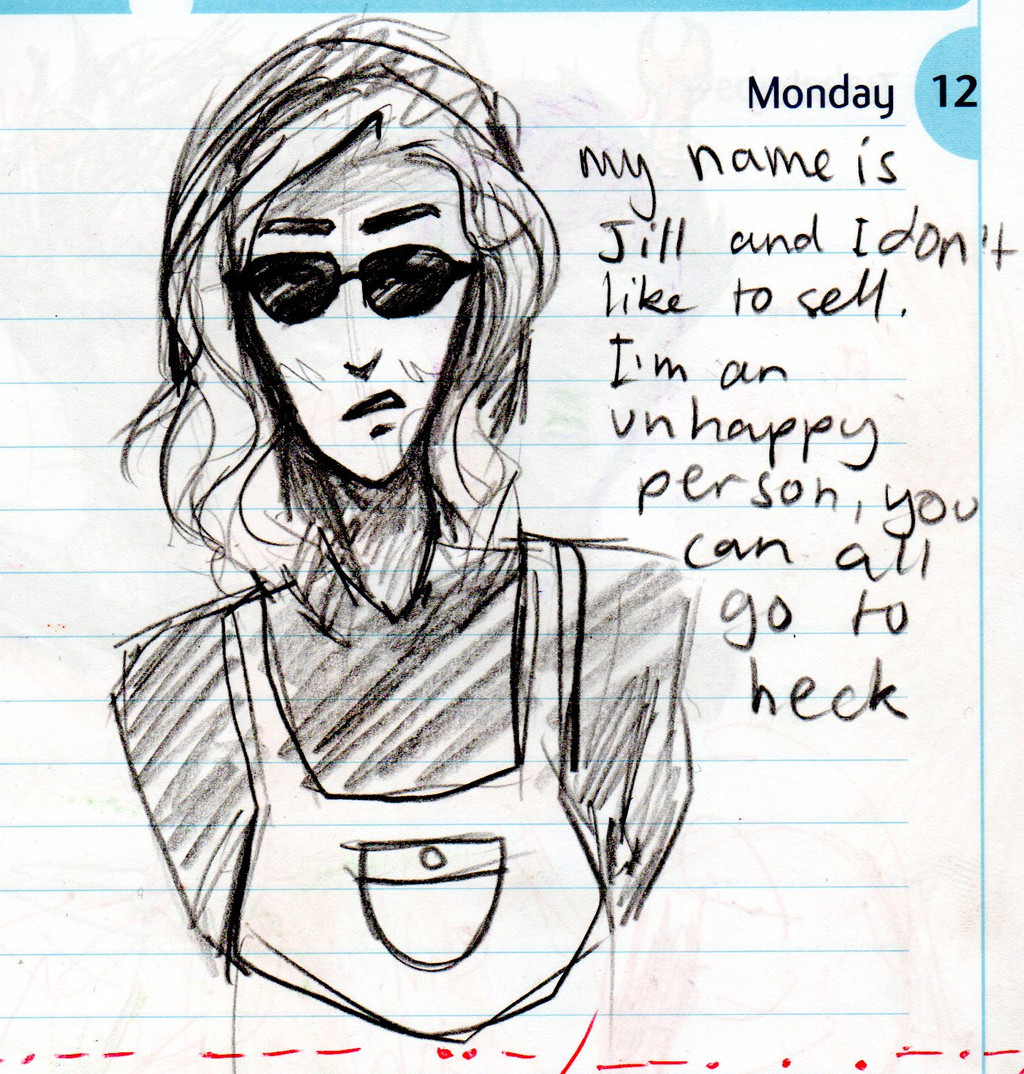 Monday 12
my name is
Jill and I don't
like to sell.
I'm an
unhappy
person, you
can all
go to
heck